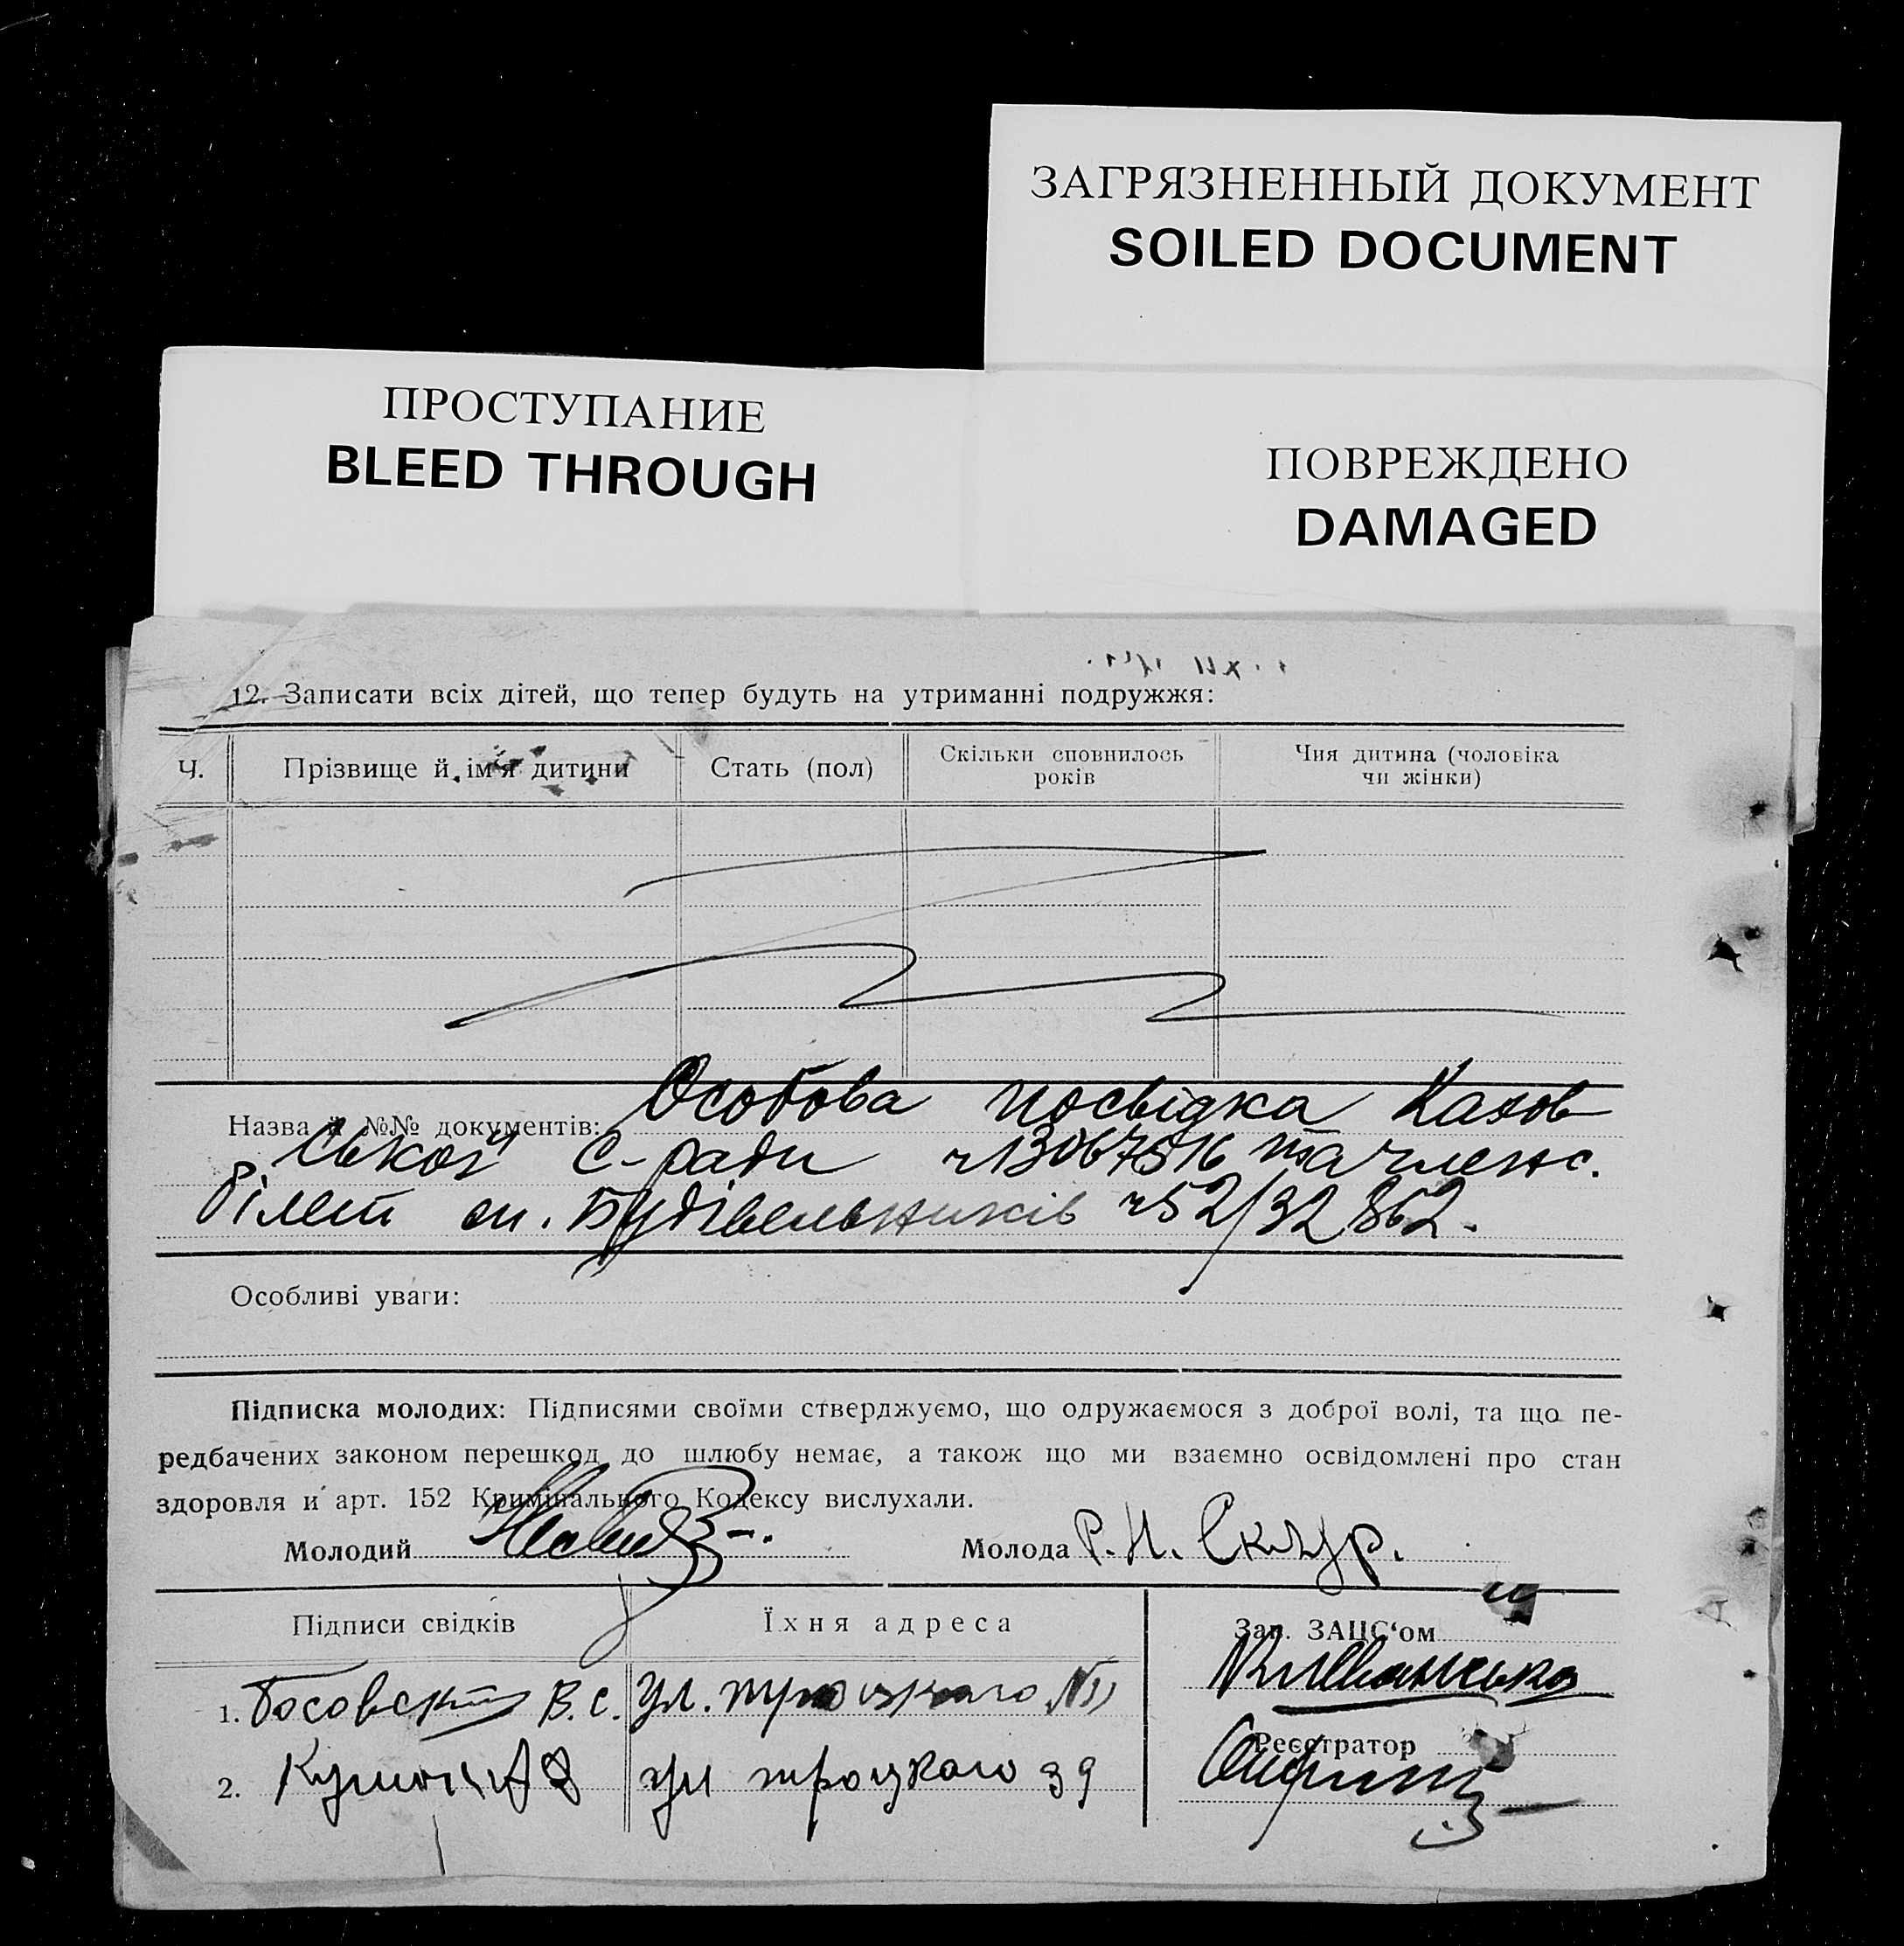 ЗАГРЯЗНЕННЫЙ ДОКУМЕНТ
SOILED DOCUMENT
ПРОСТУПАНИЕ
BLEED THROUGH
ПОВРЕЖДЕНО
DAMAGED
12. Записати всіх дітей, що тепер будуть на утриманні подружжя:
Ч. Прізвище й ім'я дитини Стать (пол) Скільки сповнилось років Чия дитина (чоловіка чи жінки)
Назва й №№ документів: Особова посвідка Кахов
ської с-ради та членс.
білет сп. Будівельників ч 52/32862.
Особливі уваги:
Підписка молодих: Підписями своїми стверджуємо, що одружаємося з доброї волі, та що пе-
редбачених законом перешкод до шлюбу немає, а також що ми взаємно освідомлені про стан
здоровля и арт. 152 Кримінального Кодексу вислухали.
Молодий Молода Р. Н.
Підписи свідків Їхня адреса Зав. ЗАЦС‘ом
1. Босовский В. С. ул. троцкаго
Реєстратор
2. ул троцкого 39